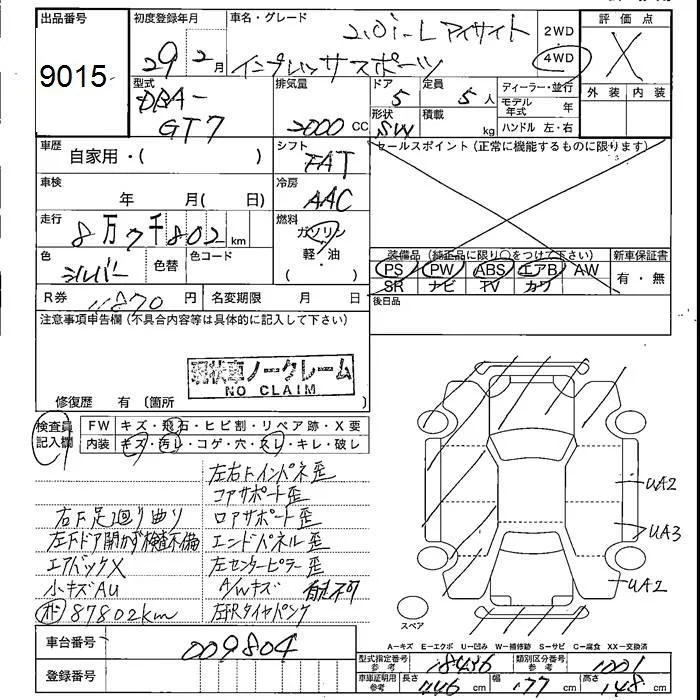 出品番号
9015
初度登録年月
29 2月
車名・グレード
2.0i-L アイサイト
インプレッサスポーツ
2WD
4WD
評価点
X
外装 内装
型式
DBA-
GT7
排気量
2000 CC
ドア
5
定員
5人
形状
SW
積載
kg
ディーラー・並行
モデル年式 年
ハンドル 左・右
車歴
自家用・( )
シフト
FAT
セールスポイント(正常に機能するものに限ります)
車検
年 月( 日)
冷房
AAC
走行
8万7千802km
燃料
ガソリン
軽・油
( )
色
シルバー
色替
色コード
装備品(純正品に限り○をつけて下さい)
新車保証書
PS PW ABS エアB AW
SR ナビ TV カワ
有・無
後日品
R券 11870円
名変期限 月 日
注意事項申告欄(不具合内容等は具体的に記入して下さい)
現状車ノークレーム
NO CLAIM
修復歴 有 〔箇所 〕
検査員記入欄
FW キズ・飛石・ヒビ割・リペア跡・X要
内装 キズ・汚レ・コゲ・穴・スレ・キレ・破レ
左右Fインパネ歪
コアサポート歪
右F足廻り曲り
ロアサポート歪
左Fドア開かず検査不備
エンドパネル歪
エアバックX
左センターピラー歪
小キズAU
A/Wキズ
87802km
左Rタイヤパンク
UA2
UA3
UA2
スペア
A－キズ E－エクボ U－凹み W－補修跡 S－サビ C－腐食 XX－交換済
車台番号
009804
登録番号
型式指定番号 参考
18436
類別区分番号 参考
1001
車庫証明用 参考
長さ 446 cm
幅 177 cm
高さ 148 cm